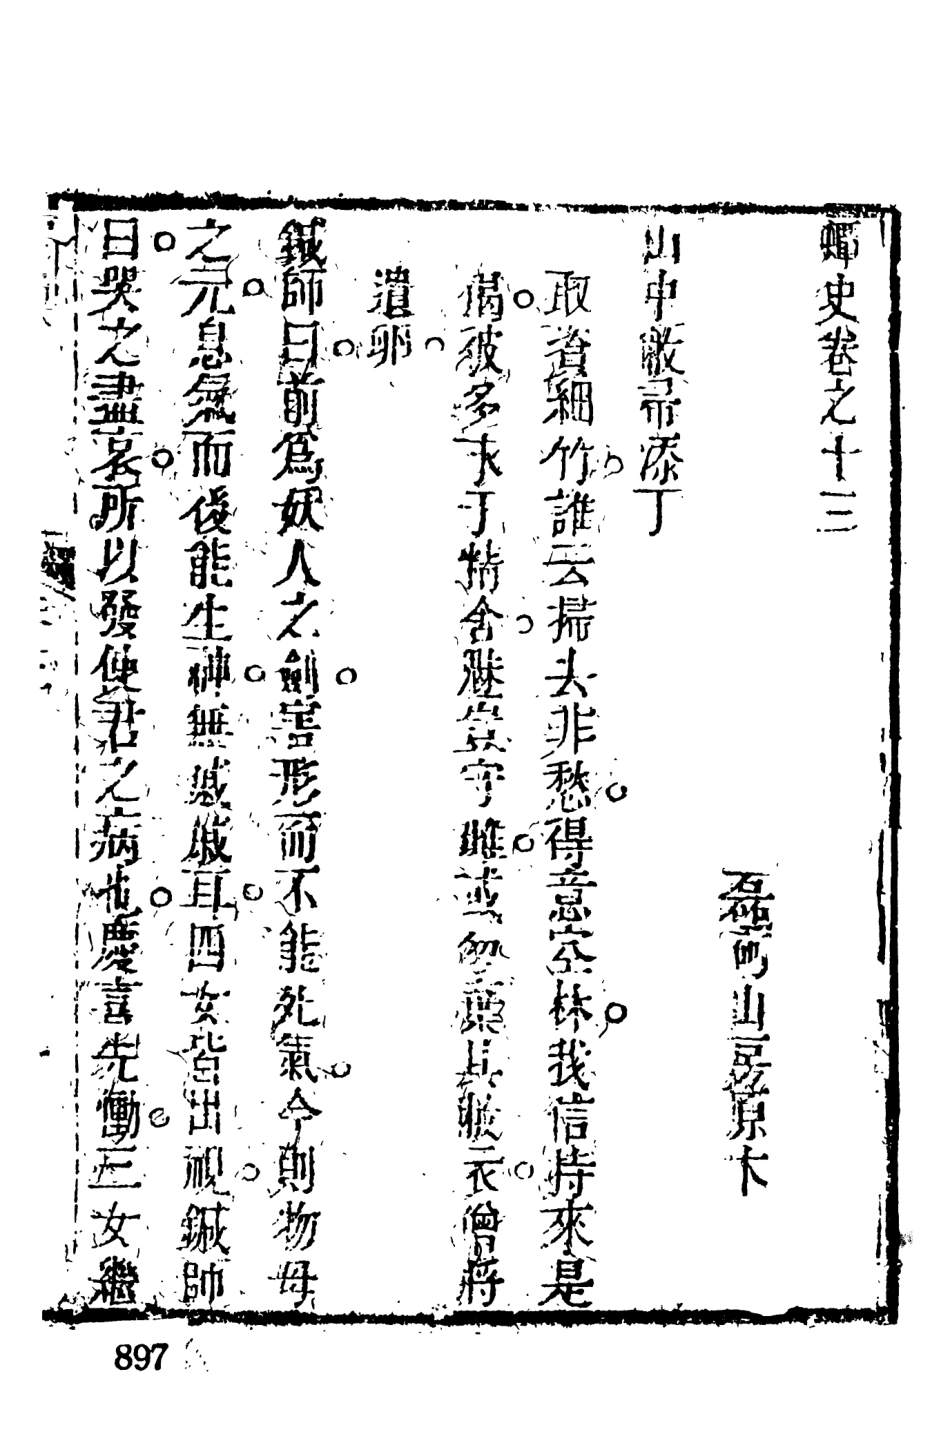 蟫史卷之十三
磊砢山房原本
山中敵帚添丁
取資細竹誰云掃去非愁得意空林我信持來是
偈彼多求于精舍雖豈守雌或勿藥其敝衣僧將
遺卵
鍼師曰前爲妖人之劍害形而不能死氣今則物母
之元息氣而後能生神無戚戚耳四女皆出視鍼師
曰哭之盡哀所以發使君之病也慶喜先慟三女繼
897